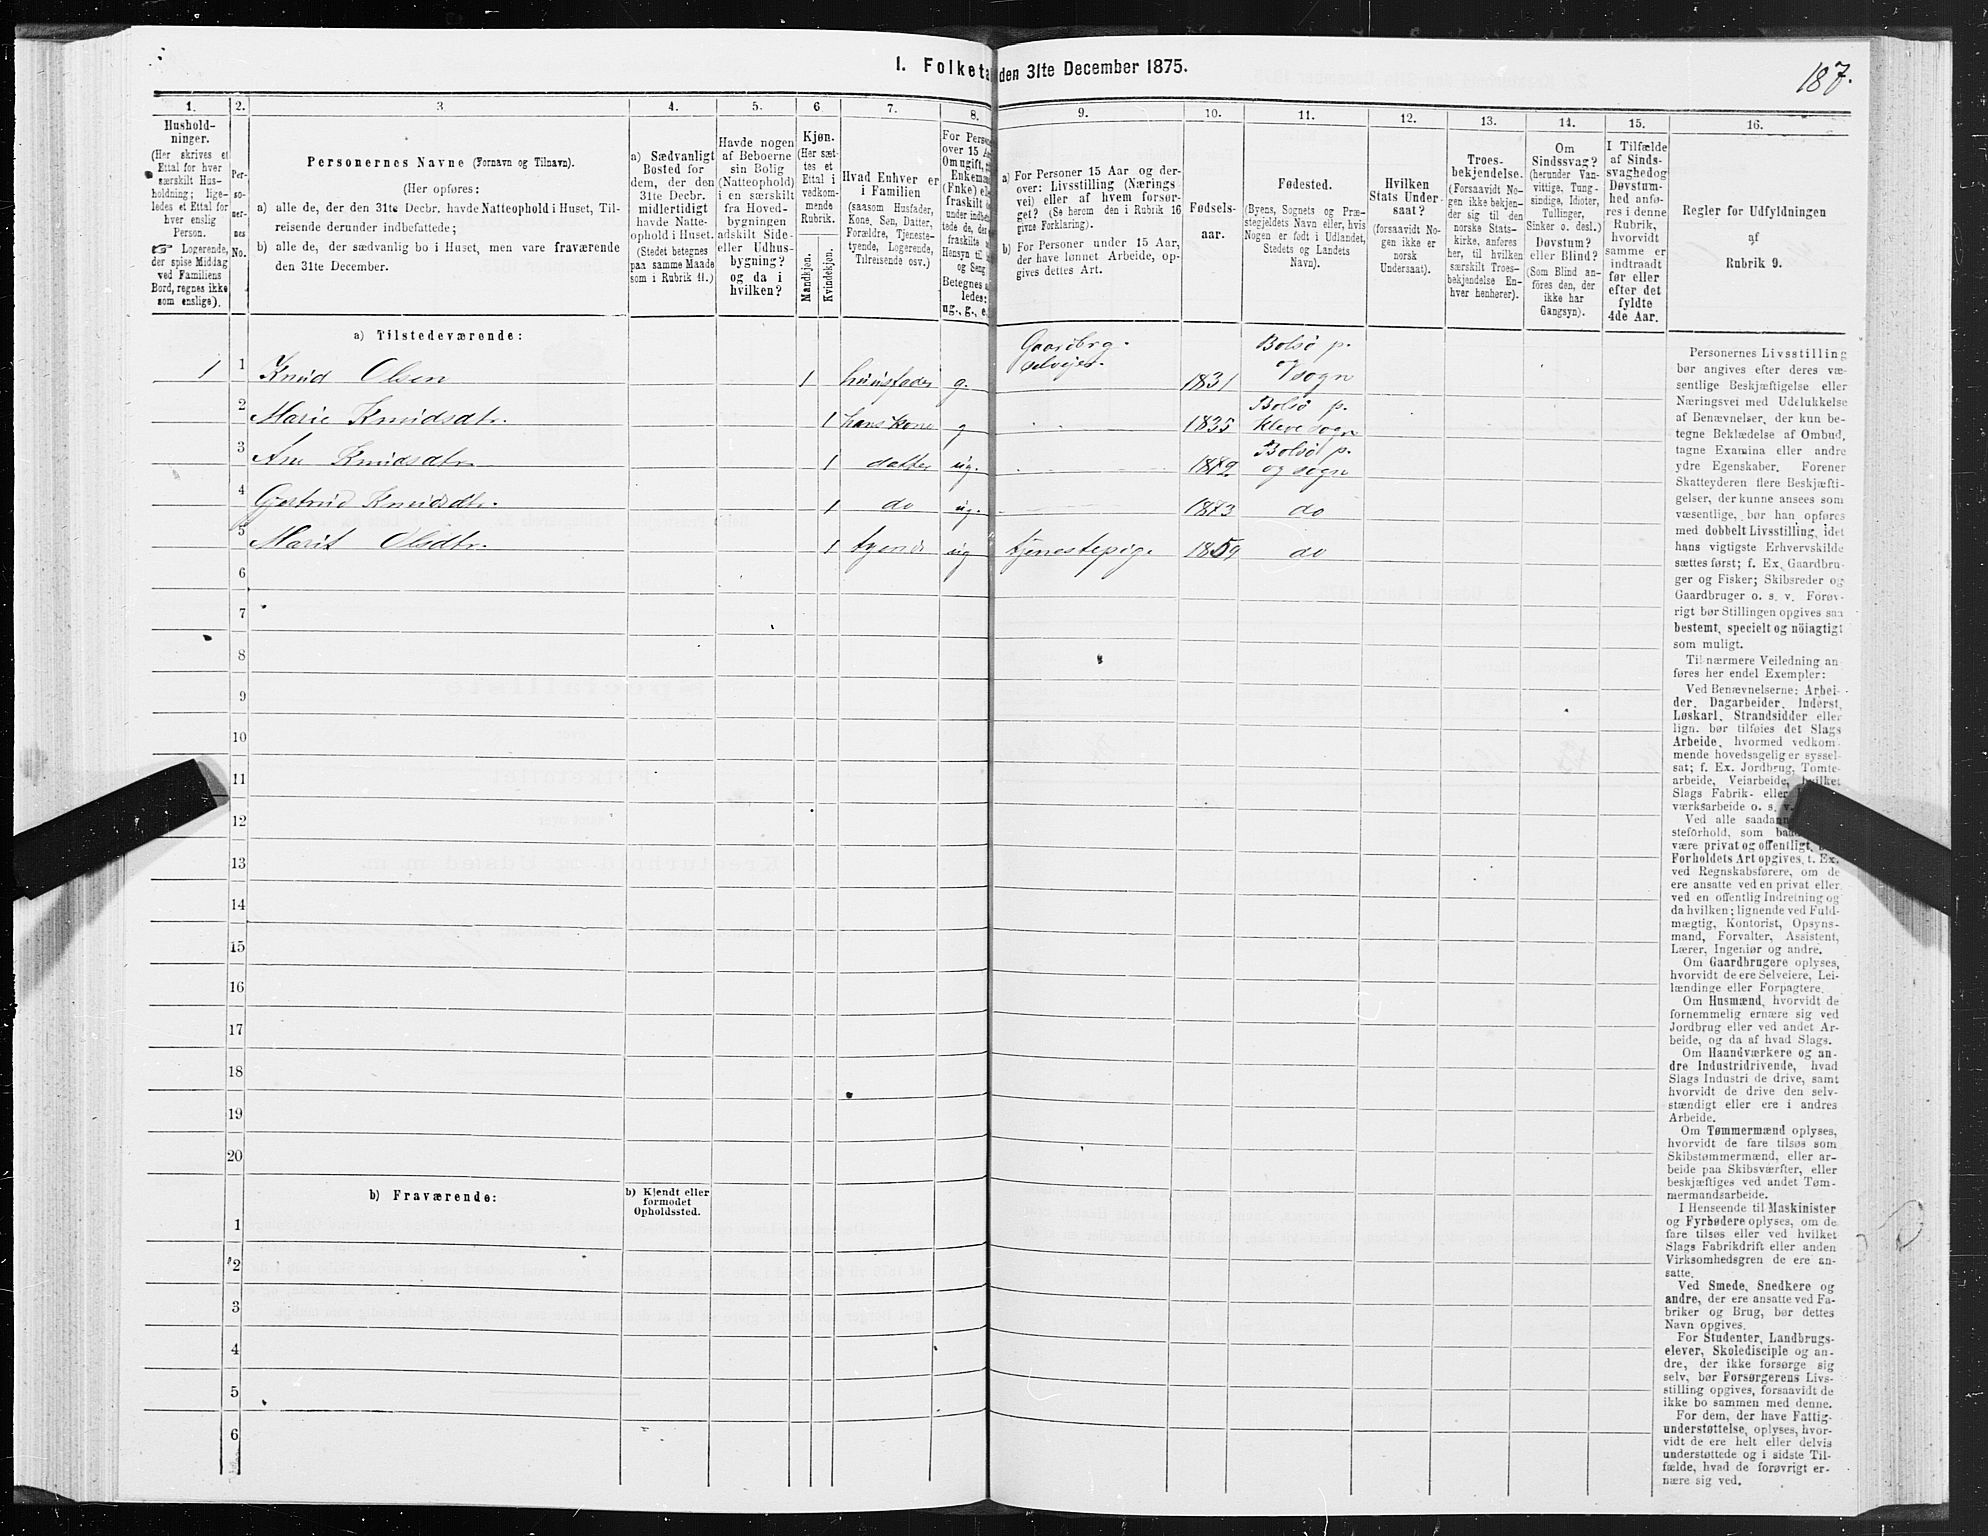 I. Folketa den 31te December 1875.
187.
1.
2.
3
4.
5.
6
7.
8.
9.
10.
11.
12.
13.
14.
15.
16.
Hushold-
ninger.
(Her skrives et
Ettal for hver
særskilt Hus-
holdning; lige-
ledes et Ettal for
hver enslig
Person.
☞ Logerende,
der spise Middag
ved Familiens
Bord, regnes ikke
som enslige).
Per-
so-
ner-
nes
No.
Personernes Navne (Fornavn og Tilnavn).
(Her opføres:
a) alle de, der den 31te Decbr. havde Natteophold i Huset, Til-
reisende derunder indbefattede;
b) alle de, der sædvanlig bo i Huset, men vare fraværende
den 31te December.
a) Sædvanligt
Bosted for
dem, der den
31te Decbr.
midlertidigt
havde Natte-
ophold i Huset.
(Stedet betegnes
paa samme Maade
som i Rubrik 11.)
Havde nogen
af Beboerne
sin Bolig
(Natteophold)
i en særskilt
fra Hoved-
bygningen
adskilt Side-
eller Udhus-
bygning?
og da i
hvilken?
Kjøn.
(Her sæt-
tes et
Ettal i
vedkom-
mende
Rubrik.
Mandkjøn.
Kvindekjøn.
Hvad Enhver er
i Familien
(saasom Husfader,
Kone, Søn, Datter,
Forældre, Tjeneste-
tyende, Logerende,
Tilreisende osv.)
For Person
over 15 A
Om ugift,
Enkemæ
(Fnke) ell
fraskilt
under indbe
tede de, der
fraskilte
Hensyn til
og Seng
Betegnes
ledes:
ug., g., e.
a) For Personer 15 Aar og der-
over: Livsstilling (Nærings
vei) eller af hvem forsør-
get? (Se herom den i Rubrik 16
givne Forklaring).
b) For Personer under 15 Aar,
der have lønnet Arbeide, op-
gives dettes Art.
Fødsels-
aar.
Fødested.
(Byens, Sognets og Præ-
stegjeldets Navn eller, hvis
Nogen er født i Udlandet,
Stedets og Landets
Navn).
Hvilken
Stats Under-
saat?
(forsaavidt No-
gen ikke er
norsk
Undersaat).
Troes-
bekjendelse.
(Forsaavidt No-
gen ikke bekjen-
der sig til den
norske Stats-
kirke, anføres
her, til hvilken
særskilt Troes-
bekjendelse En-
hver henhører).
Om
Sindssvag?
(herunder Van-
vittige, Tung-
sindige, Idioter,
Tullinger,
Sinker o. desl.)
Døvstum?
eller Blind?
(Som Blind an-
føres den, der
ikke har
Gangsyn).
I Tilfælde
af Sinds-
svaghed og
Døvstum-
hed anfø-
res i denne
Rubrik,
hvorvidt
samme er
indtraadt
før eller
efter det
fyldte
4de Aar.
Regler før Udfyldningen
af
Rubrik 9.
a) Tilstedeværende:
1 1 Knud Olsen 1 huusfader g. Gaardbrg. selvejer. 1831 Bolsø p. Vsogn
2 Marie Knudsdtr. 1 hans Kone g 1835 Bolsø p. Kleve sogn
3 Ane Knudsdtr 1 datter ug. Bolsø p. og sogn
4 Gjertrud Knudsdtr. 1 do ug. 1873 do
5 Marit Olsdtr. 1 tyende ug tjenestepige 1859 do
6
7
8
9
10
11
12
13
14
15
16
17
18
19
20
b) Fraværende:
b) Kjendt eller
formodet
Opholdssted.
1
2
3
4
5
6
Personernes Livsstilling
bør angives efter deres væ-
sentlige Beskjæftigelse eller
Næringsvei med Udelukkelse
af Benævnelser, der kun be-
tegne Beklædelse af Ombud,
tagne Examina eller andre
ydre Egenskaber. Forener
Skatteyderen flere Beskjæfti-
gelser, der kunne ansees som
væsentlige, bør han opføres
med dobbelt Livsstilling, idet
hans vigtigste Erhvervskilde
sættes først; f. Ex. Gaardbru-
ger og Fisker; Skibsreder og
Gaardbruger o. s. v. Forøv-
rigt bør Stillingen opgives saa
bestemt, specielt og nöiagtigt
som muligt.
Til nærmere Veiledning an-
føres her endel Exempler:
Ved Benævnelserne: Arbei-
der, Dagarbeider, Inderst,
Løskarl, Strandsidder eller
lign. bør tilføies det Slags
Arbeide, hvormed vedkom-
mende hovedsagelig er syssel-
sat; f. Ex. Jordbrug, Tomte-
arbeide, Veiarbeide, hvilket
Slags Fabrik- eller
værksarbeide o. s. v.
Ved alle saadan
steforhold, som ba
være privat og offentligt,
Forholdets Art opgives, t. Ex.
ved Regnskabsførere, om de
ere ansatte ved en privat eller
ved en offentlig Indretning og
da hvilken; lignende ved Fuld-
mægtig, Kontorist, Opsyns-
mand, Forvalter, Assistent,
Lærer, Ingeniør og andre.
Om Gaardbrugere oplyses,
hvorvidt de ere Selveiere, Lei-
lændinge eller Forpagtere.
Om Husmænd, hvorvidt de
fornemmelig ernære sig ved
Jordbrug eller ved andet Ar-
beide, og da af hvad Slags.
Om Haandværkere og an-
dre Industridrivende, hvad
Slags Industri de drive, samt
hvorvidt de drive den selv-
stændigt eller ere i andres
Arbeide.
Om Tømmermænd oplyses,
hvorvidt de fare tilsøs som
Skibstømmermænd, eller ar-
beide paa Skibsværfter, eller
beskjæftiges ved andet Tøm-
mermandsarbeide.
I Henseende til Maskinister
og Fyrbødere oplyses, om de
fare tilsøs eller ved hvilket
Slags Fabrikdrift eller anden
Virksomhedsgren de ere an-
satte.
Ved Smede, Snedkere og
andre, der ere ansatte ved Fa-
briker og Brug, bør dettes
Navn opgives.
For Studenter, Landbrugs-
elever, Skoledisciple og an-
dre, der ikke forsørge sig
selv, bør Forsørgerens Livs-
stilling opgives, forsaavidt de
ikke bo sammen med denne.
For dem, der have Fattig-
understøttelse, oplyses, hvor-
vidt de ere helt eller delvis
understøttede og i sidste Til-
fælde, hvad de forøvrigt er-
nære sig ved.